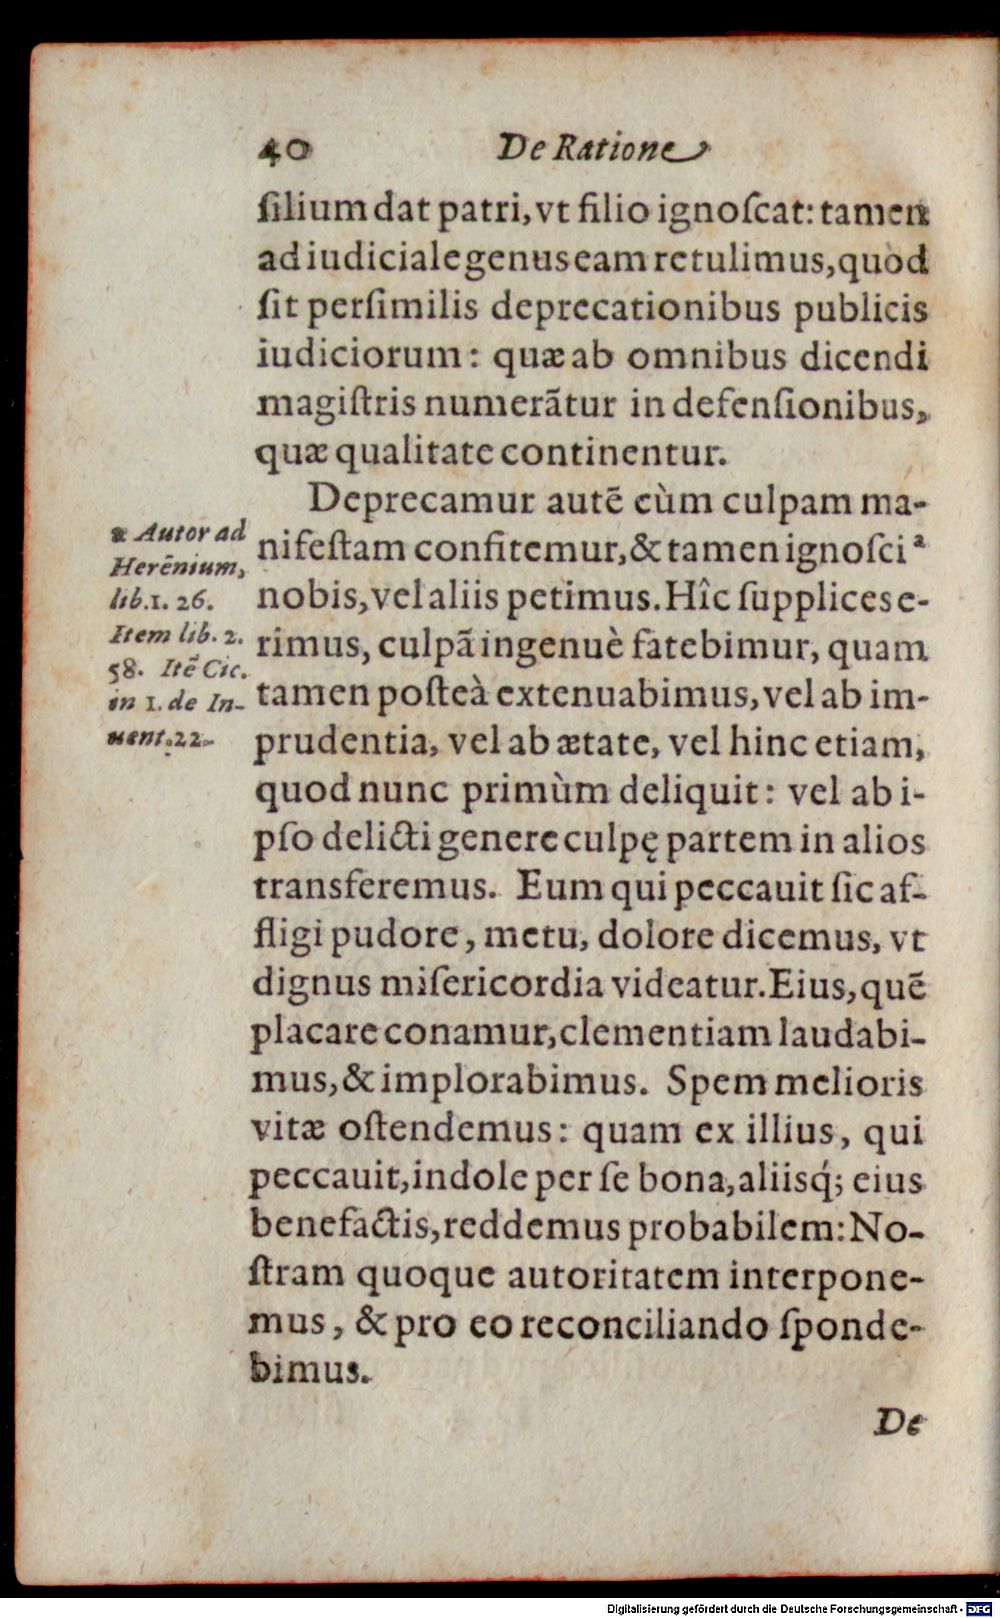 40 De Ratione
ſilium dat patri, vt filio ignoſcat: tamen
ad iudiciale genus eam retulimus, quòd
ſit perſimilis deprecationibus publicis
iudiciorum: quæ ab omnibus dicendi
magiſtris numerãtur in defenſionibus,
quæ qualitate continentur.
Deprecamur autẽ cùm culpam ma-
nifeſtam confitemur, & tamen ignoſci ª
nobis, vel aliis petimus. Hîc ſupplices e-
rimus, culpã ingenuè fatebimur, quam
tamen poſteà extenuabimus, vel ab im-
prudentia, vel ab ætate, vel hinc etiam,
quod nunc primùm deliquit: vel ab i-
pſo delicti genere culpę partem in alios
transferemus. Eum qui peccauit ſic af-
fligi pudore, metu, dolore dicemus, vt
dignus miſericordia videatur. Eius, quẽ
placare conamur, clementiam laudabi-
mus, & implorabimus. Spem melioris
vitæ oſtendemus: quam ex illius, qui
peccauit, indole per ſe bona, aliisq́; eius
benefactis, reddemus probabilem: No-
ſtram quoque autoritatem interpone-
mus, & pro eo reconciliando ſponde-
bimus.
De
a Autor ad
Herẽnium,
lib. 1. 26.
Item lib. 2.
58. Itẽ Cic.
in 1. de In-
uent. 22.
Digitalisierung gefördert durch die Deutsche Forschungsgemeinschaft - DFG